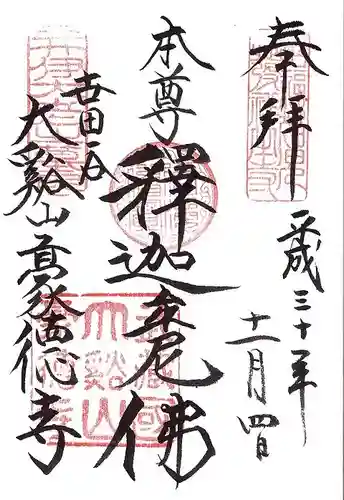 奉拝
平成三十年
十一月四日
本尊
釋迦牟尼佛
世田谷
大谿山豪徳寺